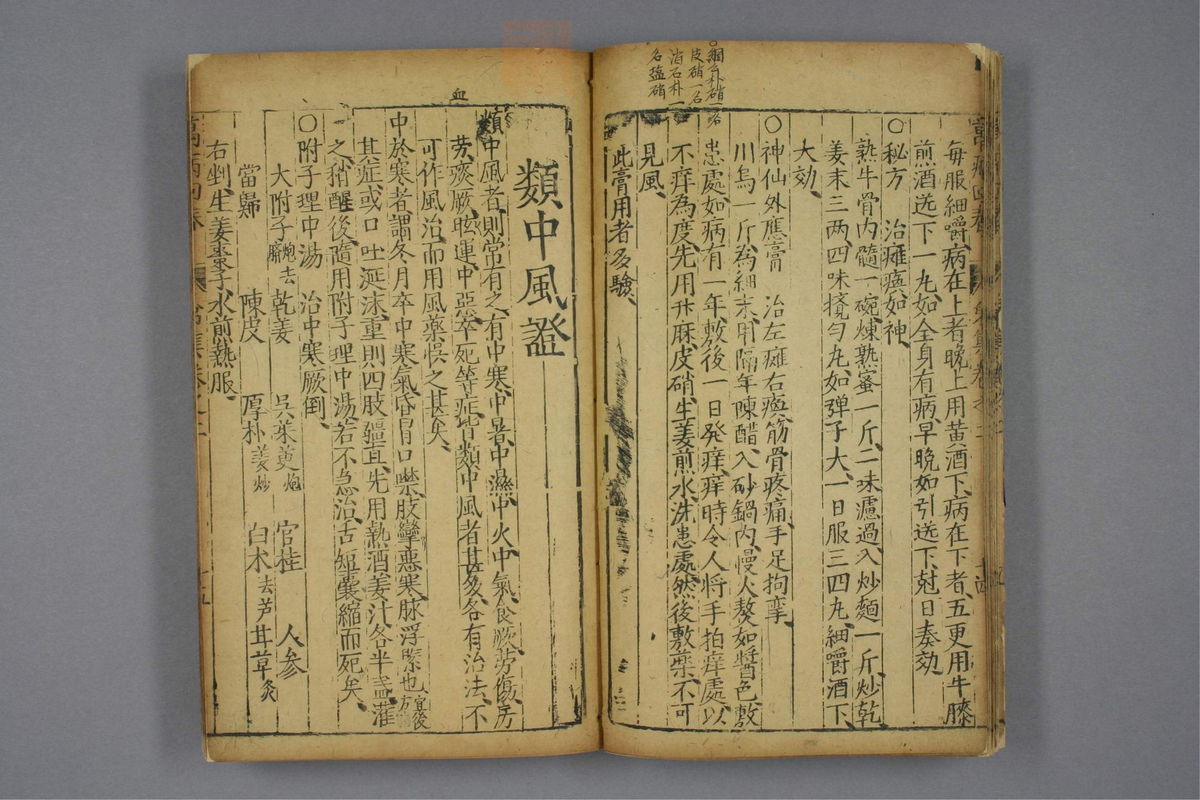 綱目朴硝一名
皮硝一名
消石朴一
名盬硝
每服細嚼、病在上者、晚上用黃酒下、病在下者、五更用牛膝
煎酒送下一丸、如全身有病、早晚如引送下、尅日奏効、
○秘方　治癱瘓如神、
熟牛骨內髓一碗、煉熟蜜一斤、二味濾過入炒麵一斤、炒乾
姜末三两、四味攪勻、丸如彈子大、一日服三四丸、細嚼酒下、
大効、
○神仙外應膏　治左癱右瘓、筋骨疼痛、手足拘攣、
川烏一斤、為細末、用隔年陳醋、入砂鍋內、慢火熬如醬色、敷
患處、如病有一年、敷後一日發癢、癢時令人將手拍癢處、以
不癢為度、先用升麻、皮硝、生姜煎水、洗患處、然後敷藥、不可
見風、
此膏用者多驗、
血
類中風證
類中風者、則常有之、有中寒、中暑、中濕、中火、中氣、食厥、勞傷、房
劳、痰厥、眩運、中惡、卒死等症、皆類中風者甚多、各有治法、不
可作風治、而用風藥、悞之甚矣、
中於寒者、謂冬月卒中寒氣、昏冒口噤、肢攣惡寒、脉浮緊也、宜後方
其症或口吐涎沫、重則四肢彊直、先用熱酒姜汁各半盞、灌
之、稍醒後、隨用附子理中湯、若不急治、舌短囊縮而死矣、
○附子理中湯　治中寒厥倒、
大附子炮去臍　乾姜　吳茱萸炮　官桂　人参
當歸　陳皮　厚朴姜炒　白术去芦　甘草炙
右剉、生姜棗子、水煎熱服、